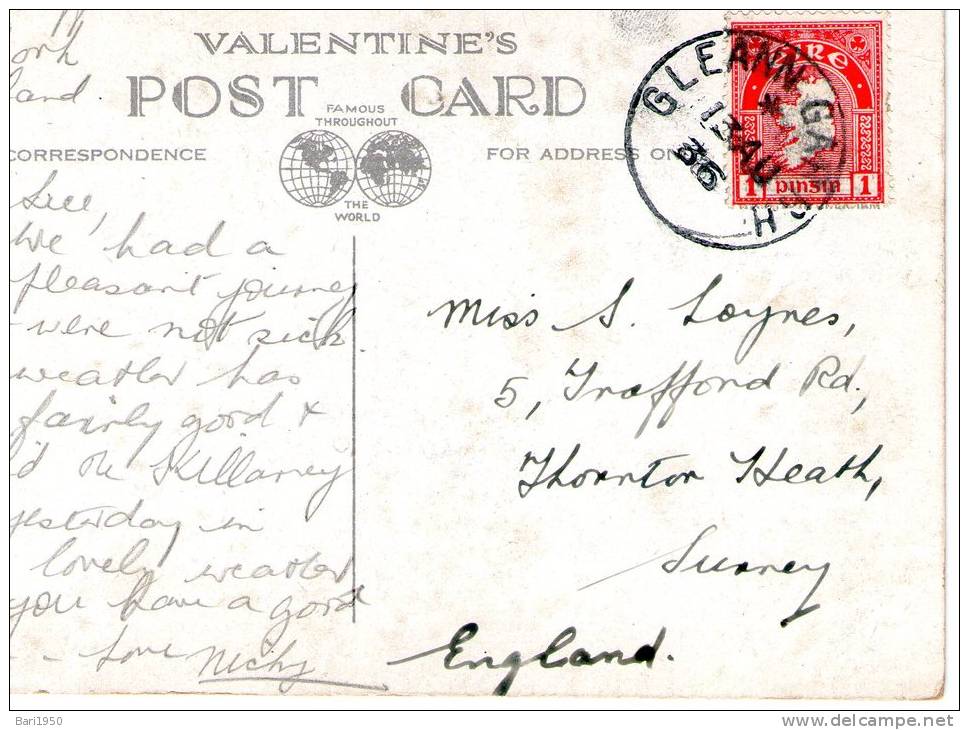 VALENTINE'S
POST CARD
FAMOUS
THROUGHOUT
THE
WORLD
CORRESPONDENCE
FOR ADDRESS ON
GLEANN GA
13 AU
36
ÉIRE
1 pinsin 1
ork
land
Sue,
We had a
pleasant journey
were not sick
weather has
fairly good +
d the Killarney
yesterday in
lovely weather
you have a good
- - Love Nicky
Miss S. Loynes,
5, Trafford Rd.,
Thornton Heath,
Surrey
England.
Bari1950
delcampe.net